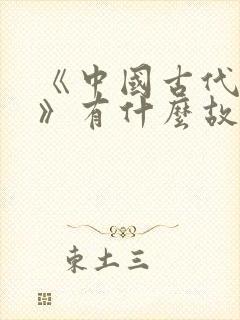 《中國古代
》有什麼故
東土三